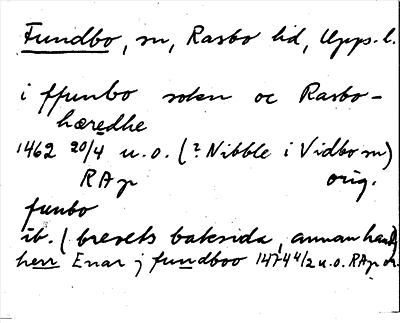 Fundbo, sn, Rasbo hd, Upps.l.
i ffunbo sokn oc Rasbo-
hæredhe
1462 20/4 u.o. (? Nibble i Vidbo sn)
RAp orig.
funbo
ib. (brevets baksida, annan hand)
herr Enar j fundboo 1474 4/2 u.o. RAp or.